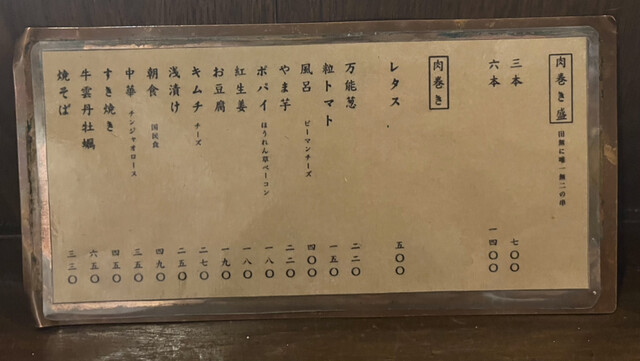 肉巻き盛
三本 七〇〇
六本 一四〇〇
肉巻き
レタス 五〇〇
万能葱 二二〇
粒トマト 一五〇
風呂 ピーマンチーズ 四〇〇
やま芋 二二〇
ポパイ ほうれん草ベーコン 一八〇
紅生姜 一八〇
お豆腐 一九〇
キムチ チーズ 二七〇
浅漬け 二五〇
朝食 国民食 四九〇
中華 チンジャオロース 三五〇
すき焼き 四五〇
牛雲丹牡蠣 六五〇
焼そば 三三〇